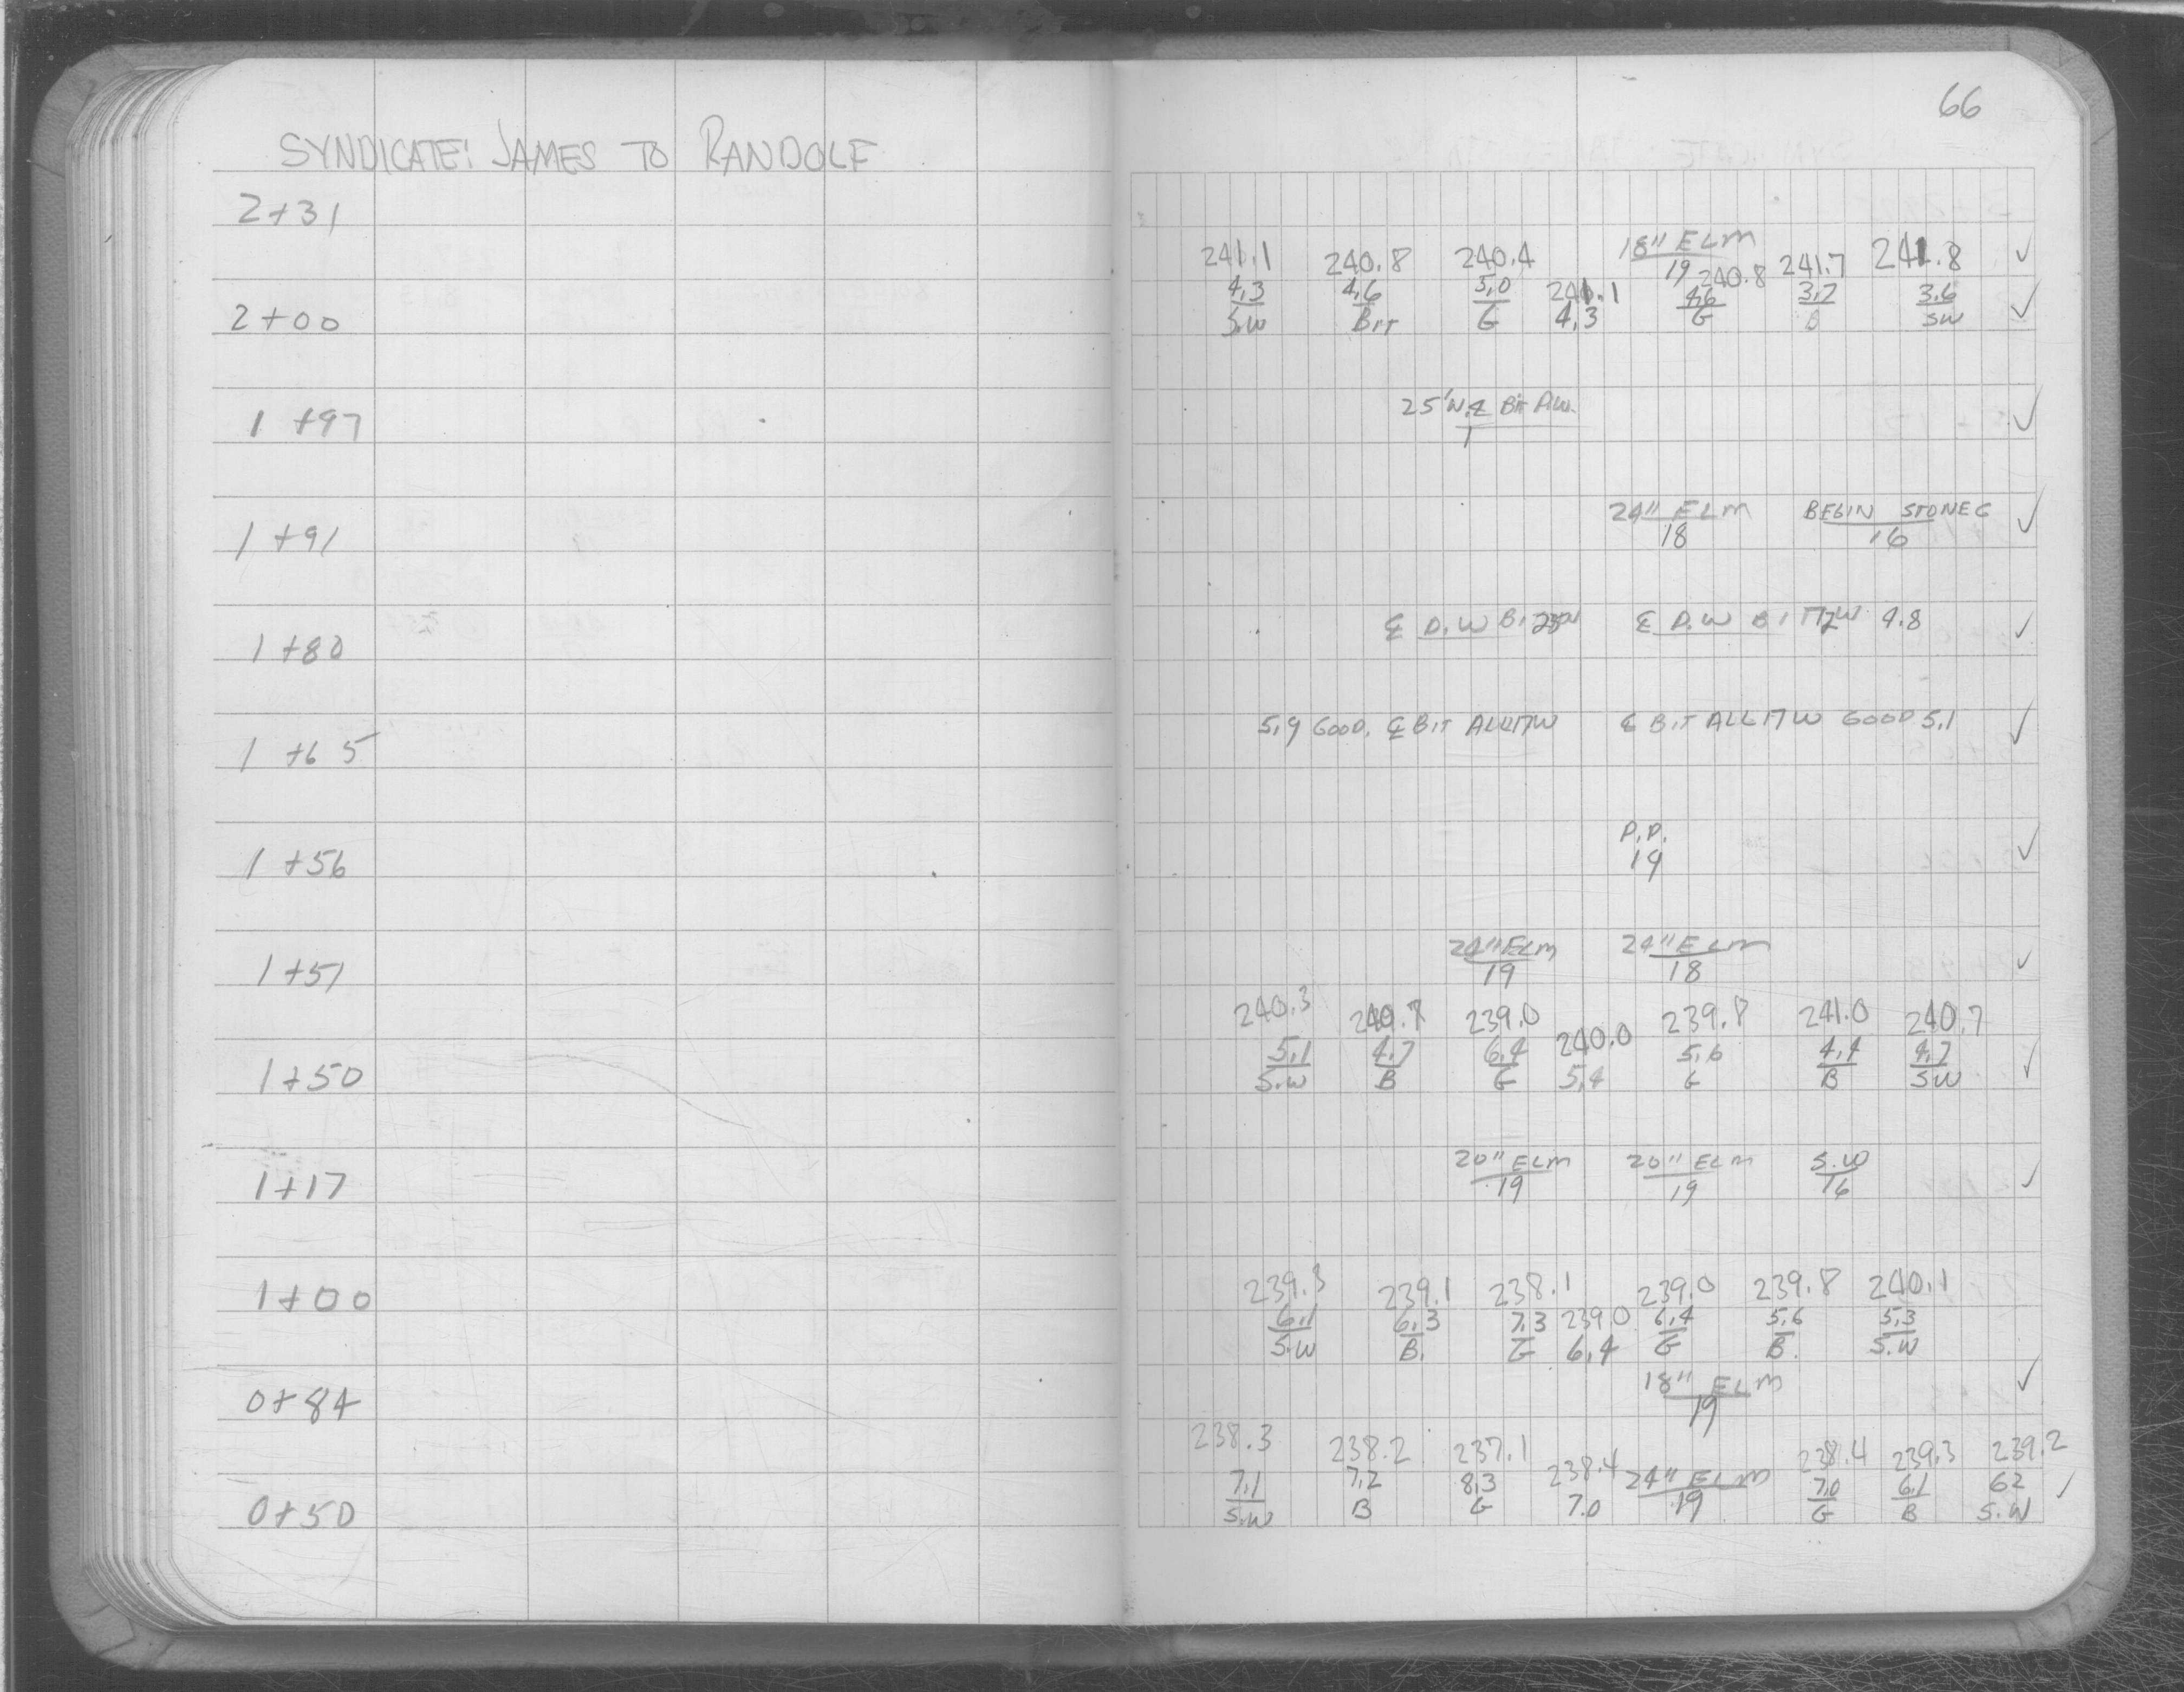 66
SYNDICATE: JAMES TO RANDOLF
2+31
18" ELM
19
241.1 240.8 240.4 240.8 241.7 241.8 ✓
4.3 4.6 5.0 241.1 4.6 3.7 3.6
2+00 S.W BIT G 4.3 G B SW ✓
1+97 25'W.℄ BIT AW. ✓
1
1+91 24" ELM BEGIN STONE G ✓
18 16
1+80 ℄ D.W BIT ℄ D.W BIT 17W 4.8 ✓
1+65 5.9 GOOD. ℄ BIT ALL17W ℄ BIT ALL 17W GOOD 5.1 ✓
1+56 P.P. ✓
19
1+51 24" ELM 24" ELM ✓
19 18
240.3 240.7 239.0 240.0 239.8 241.0 240.7
5.1 4.7 6.4 5.6 4.4 4.7
1+50 S.W B G 5.4 G B SW ✓
1+17 20" ELM 20" ELM S.W ✓
19 19 16
1+00 239.3 239.1 238.1 239.0 239.8 240.1
6.1 6.3 7.3 239.0 6.4 5.6 5.3
S.W B. G 6.4 G B. S.W
0+84 18" ELM ✓
19
238.3 238.2 237.1 238.4 238.4 239.3 239.2
7.1 7.2 8.3 24" ELM 7.0 6.1 62 ✓
0+50 S.W B G 7.0 19 G B S.W